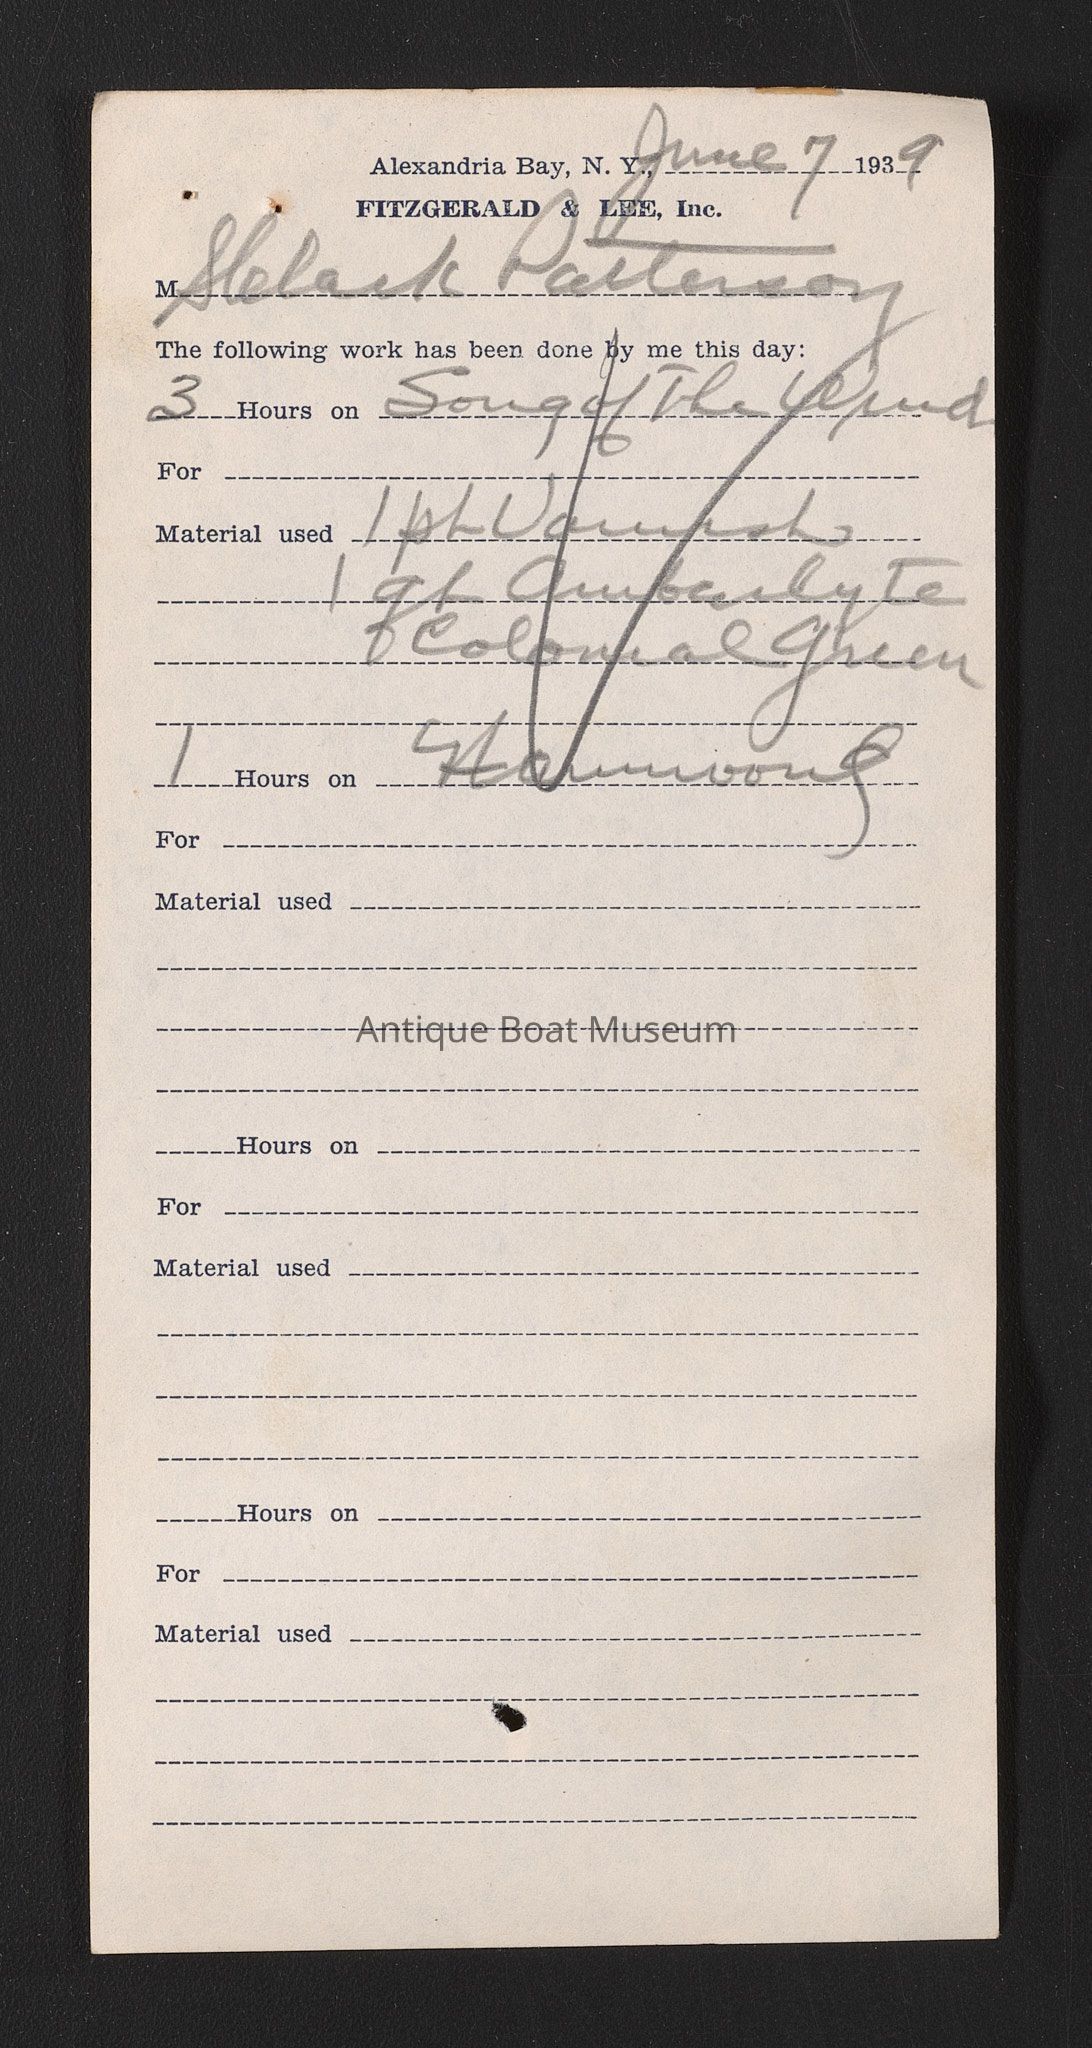 Alexandria Bay, N. Y., June 7 1939
FITZGERALD & LEE, Inc.
M Patterson
The following work has been done by me this day:
3 Hours on Song of The Wind
For
Material used 1 pt Varnish
1 qt Amberlyte
of Colonial Green
1 Hours on
For
Material used
Antique Boat Museum
Hours on
For
Material used
Hours on
For
Material used